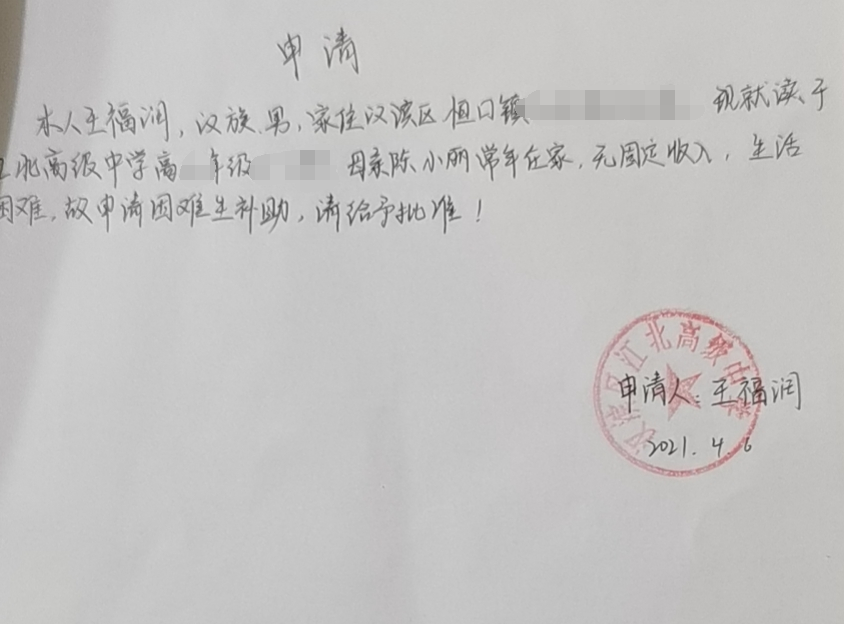 申请
本人王福润，汉族、男，家住汉滨区恒口镇 现就读于
江北高级中学高 年级 母亲陈小丽常年在家，无固定收入，生活
困难，故申请困难生补助，请给予批准！
汉滨区江北高级中学
申请人：王福润
2021.4.6